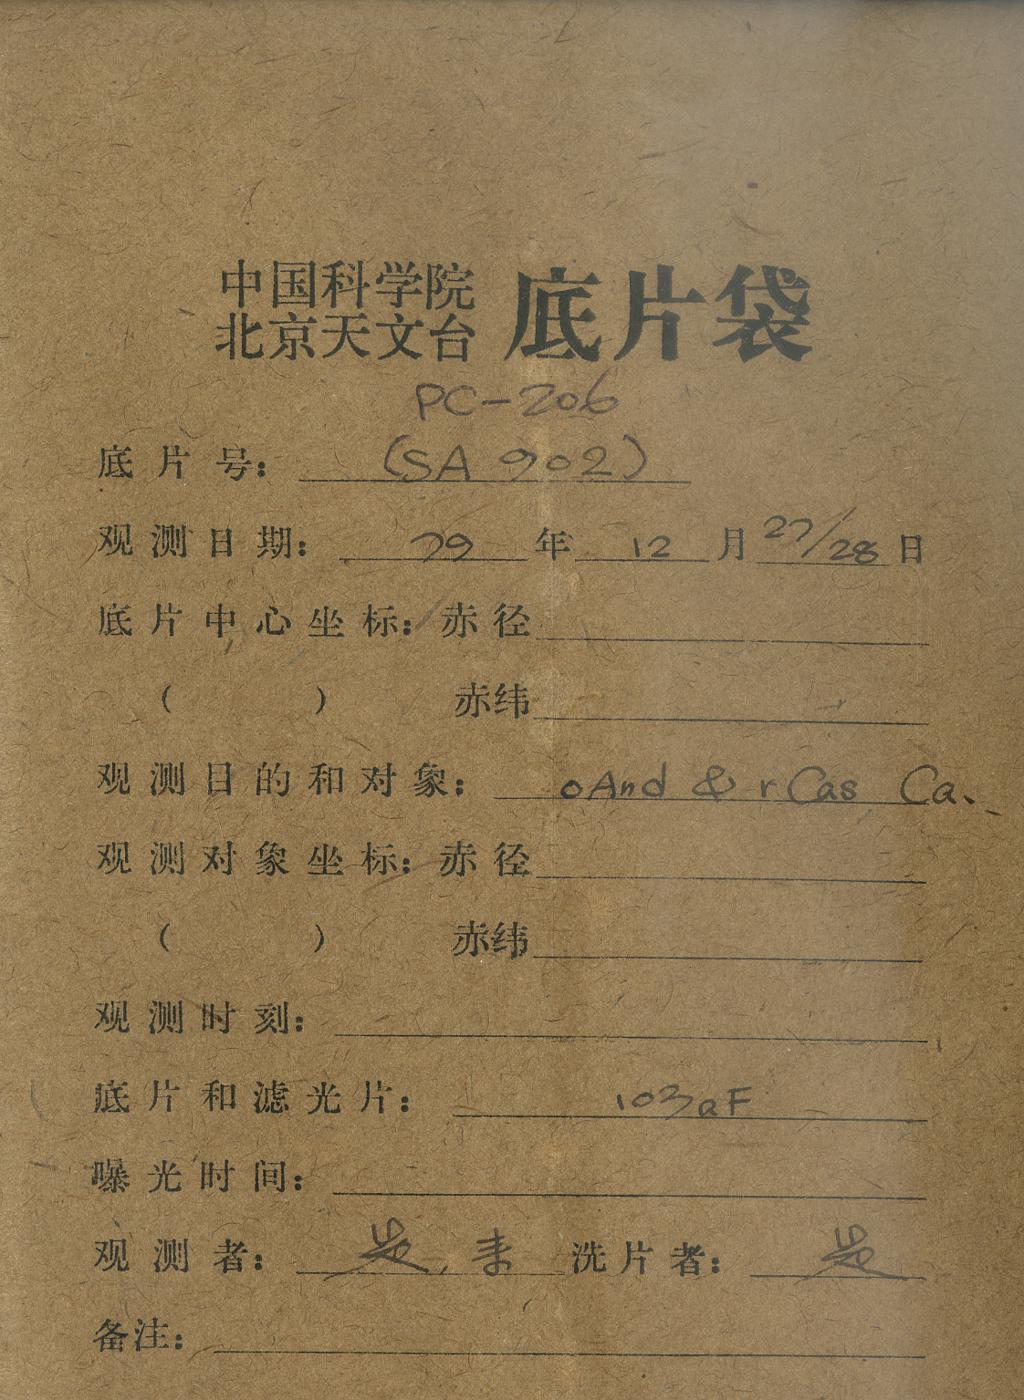 中国科学院
北京天文台 底片袋
PC-206
底片号: (SA 902)
观测日期: 79 年 12 月 27/28 日
底片中心坐标: 赤径
( ) 赤纬
观测目的和对象: oAnd & rCas Ca、
观测对象坐标: 赤径
( ) 赤纬
观测时刻:
底片和滤光片: 103aF
曝光时间:
观测者: 洗片者:
备注: